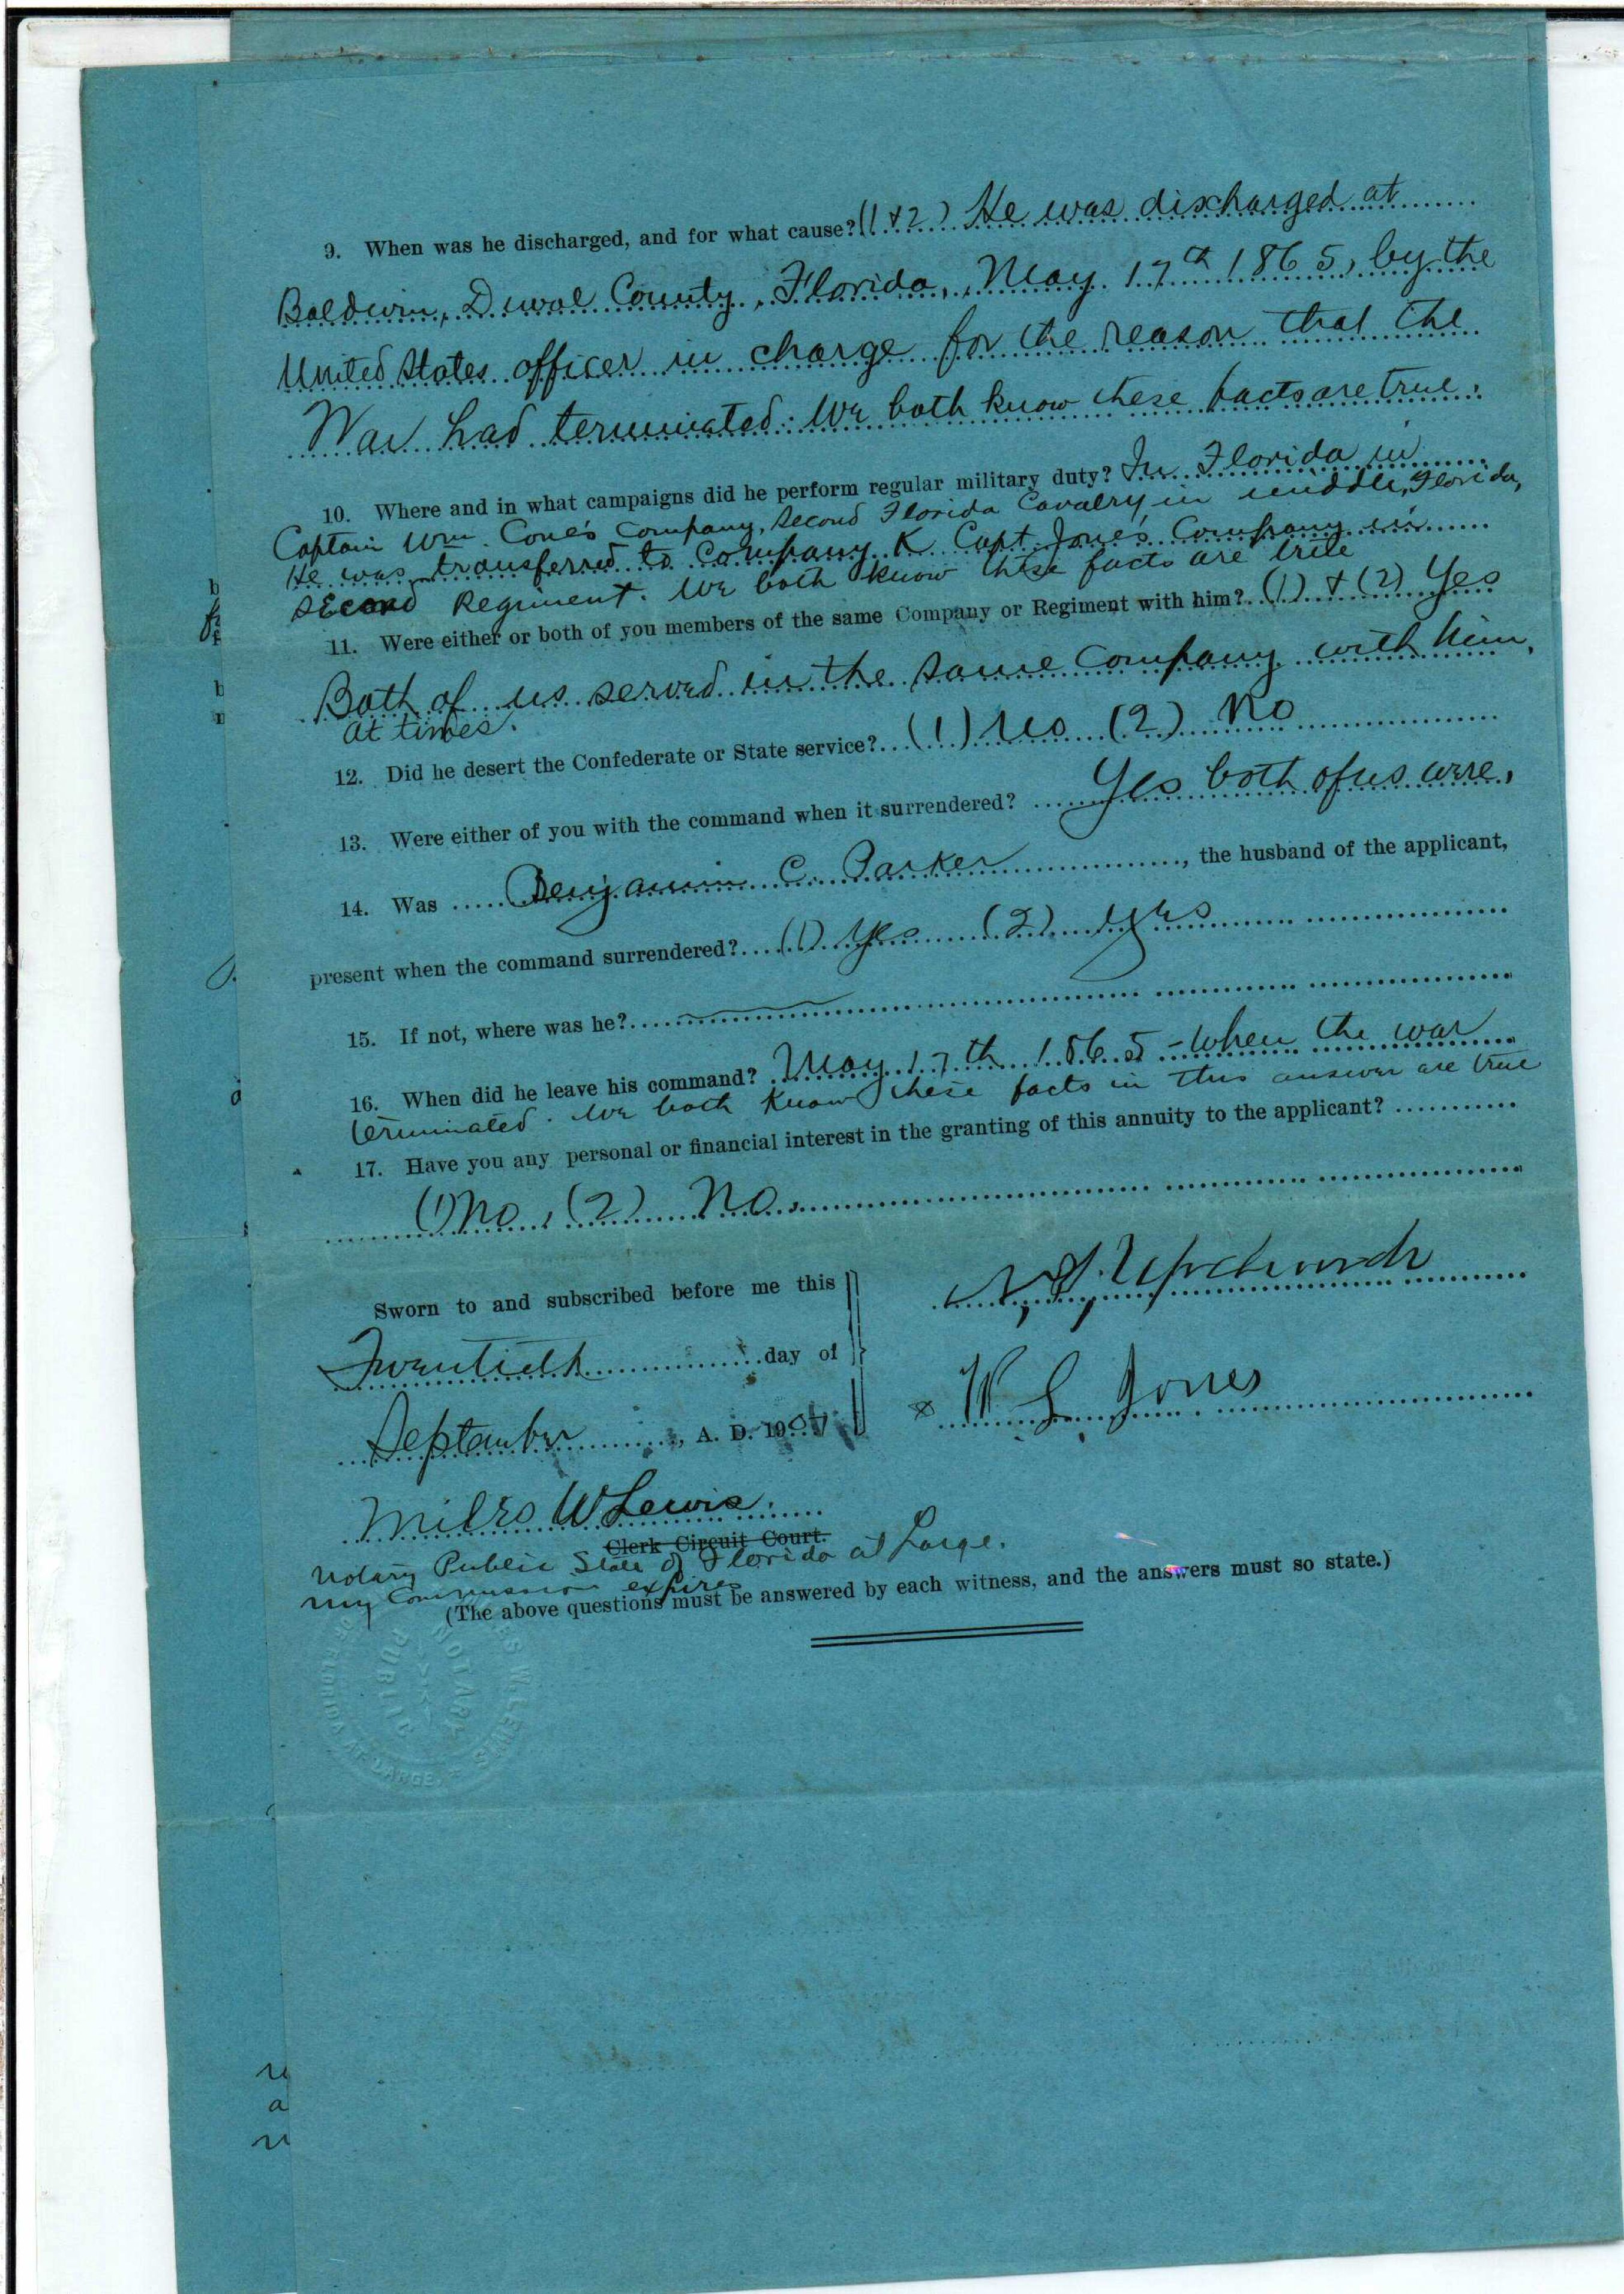 9. When was he discharged, and for what cause? (1 & 2) He was discharged at
Baldwin, Duval County, Florida, May 17th 1865, by the
United States officer in charge for the reason that the
War had terminated. We both know these facts are true.
10. Where and in what campaigns did he perform regular military duty? In Florida in
Captain Wm. Cone's Company, Second Florida Cavalry in middle, Florida,
He was transferred to Company K Capt. Jones' Company in
Second Regiment. We both know these facts are true
11. Were either or both of you members of the same Company or Regiment with him? (1) & (2) Yes
Both of us served in the same Company with him,
at times.
12. Did he desert the Confederate or State service? (1) No (2) No
13. Were either of you with the command when it surrendered? Yes both of us were,
14. Was Benjamin C. Parker, the husband of the applicant,
present when the command surrendered? (1) Yes (2) yes
15. If not, where was he?
16. When did he leave his command? May 17th 1865 - When the war
terminated. We both know these facts in this answer are true
17. Have you any personal or financial interest in the granting of this annuity to the applicant?
(1) No, (2) No.
Sworn to and subscribed before me this
Twentieth day of
September, A. D. 1907
Upchurch
x W L Jones
Miles W Lewis.
Clerk Circuit Court.
Notary Public State of Florida at Large.
My Commission expires
(The above questions must be answered by each witness, and the answers must so state.)
W. LEWIS
NOTARY
PUBLIC
OF FLORIDA AT LARGE.